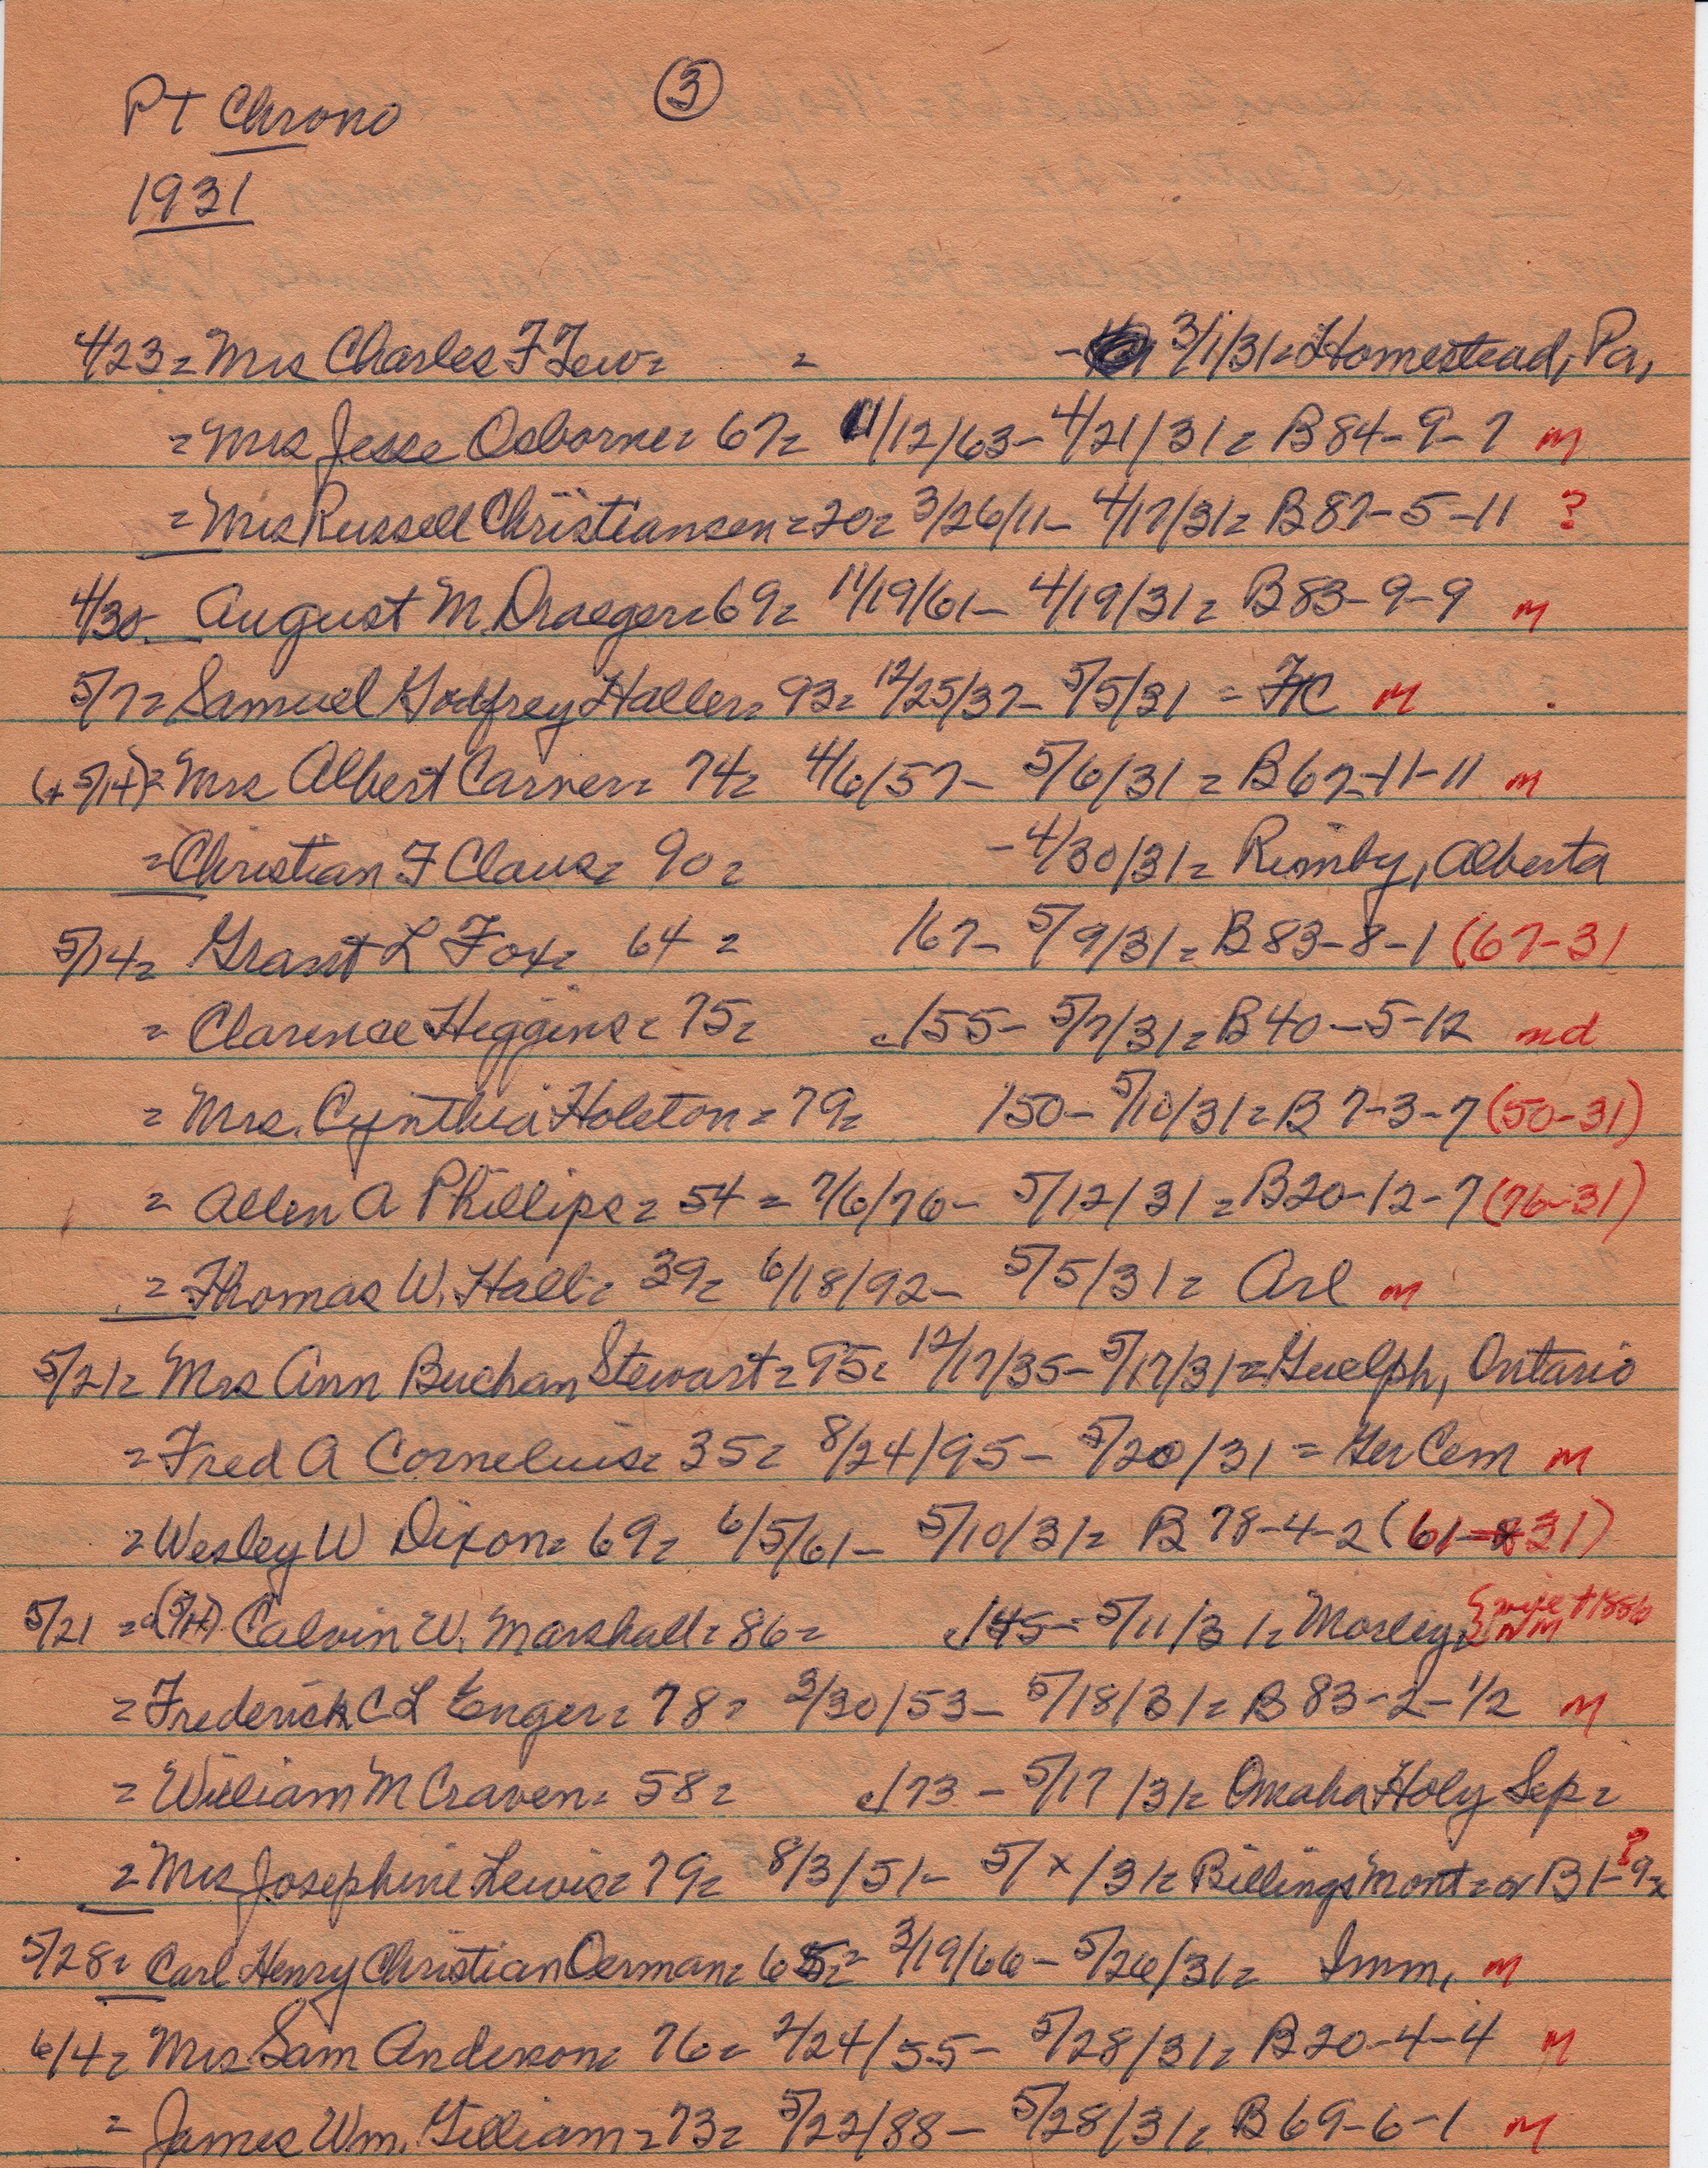 PT Chrono ③
1931
4/23 = Mrs Charles F Tew = = - 3/1/31 = Homestead, Pa,
= Mrs Jesse Osborne = 67 = 11/12/63 - 4/21/31 = B 84-9-7 m
= Mrs Russell Christiansen = 20 = 3/26/11 - 4/17/31 = B 87-5-11 ?
4/30 - August M Draeger = 69 = 11/19/61 - 4/19/31 = B 83-9-9 m
5/7 = Samuel Godfrey Haller = 93 = 12/25/37 - 5/5/31 = FC m
(+ 5/14) = Mrs Albert Carver = 74 = 4/6/57 - 5/6/31 = B 67-11-11 m
= Christian F Claus = 90 = - 4/30/31 = Rimby, Alberta
5/14 = Grant L Fox = 64 = /67 - 5/9/31 = B 83-8-1 (67-31)
= Clarence Higgins = 75 = c/55 - 5/7/31 = B 40-5-12 nd
= Mrs. Cynthia Holston = 79 = /50 - 5/10/31 = B 7-3-7 (50-31)
= Allen A Phillips = 54 = 7/6/76 - 5/12/31 = B 20-12-7 (76-31)
= Thomas W. Hall = 39 = 6/18/92 - 5/5/31 = Arl m
5/21 = Mrs Ann Buchan Stewart = 95 = 12/17/35 - 5/17/31 = Guelph, Ontario
= Fred A Cornelius = 35 = 8/24/95 - 5/20/31 = Ger Cem m
= Wesley W Dixon = 69 = 6/5/61 - 5/10/31 = B 78-4-2 (61-31)
5/21 = (5/14) Calvin W. Marshall = 86 = c/45 - 5/11/31 = Mosley, { wife +1886 NM
= Frederick C L Enger = 78 = 3/30/53 - 5/18/31 = B 83-2-1/2 m
= William M Craven = 58 = c/73 - 5/17/31 = Omaha Holy Sep =
= Mrs Josephine Lewis = 79 = 8/3/51 - 5/x/31 = Billings Mont = or B 1-9-x ?
5/28 = Carl Henry Christian Oerman = 65 = 3/19/66 - 5/26/31 = Imm, m
6/4 = Mrs Sam Anderson = 76 = 2/24/55 - 5/28/31 = B 20-4-4 m
= James Wm. Gilliam = 73 = 5/22/88 - 5/28/31 = B 69-6-1 m